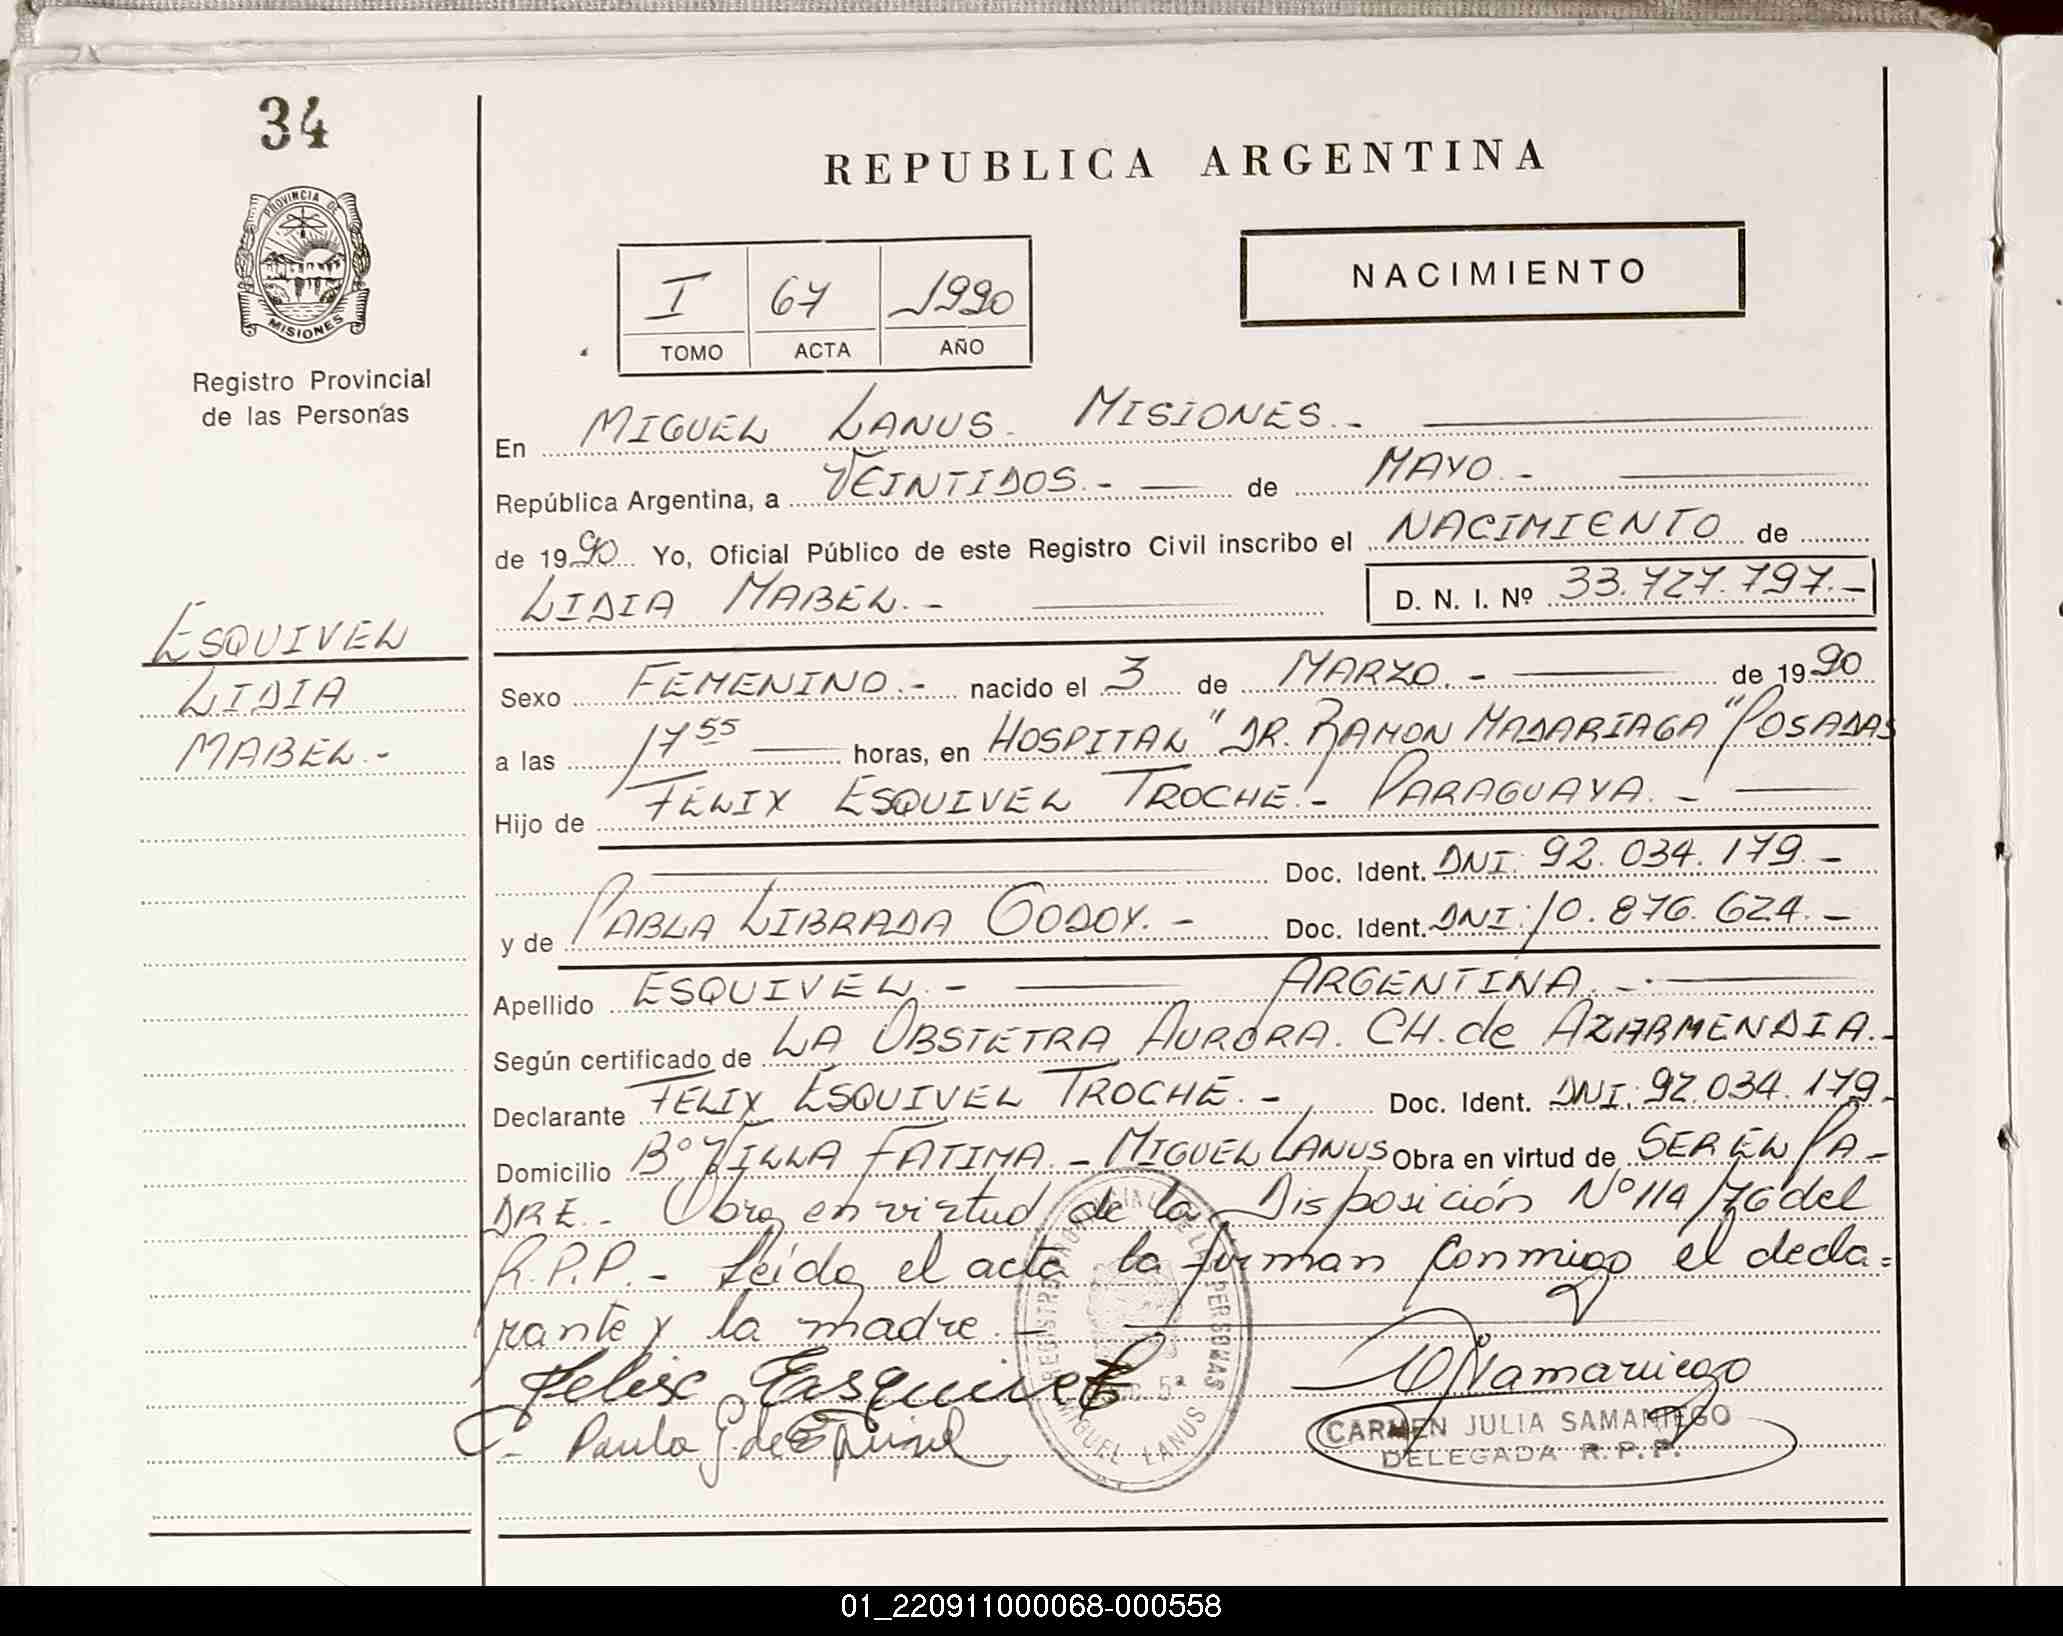 34
REPUBLICA ARGENTINA
PROVINCIA DE
MISIONES
Registro Provincial
de las Personas
I 67 1990
TOMO ACTA AÑO
NACIMIENTO
En MIGUEL LANUS. MISIONES.-
República Argentina, a VEINTIDOS.- de MAYO.-
de 1990 Yo, Oficial Público de este Registro Civil inscribo el NACIMIENTO de
LIDIA MABEL.- D. N. I. Nº 33.727.797.-
ESQUIVEL
LIDIA
MABEL.-
Sexo FEMENINO.- nacido el 3 de MARZO.- de 1990
a las 17 55 horas, en HOSPITAL "DR. RAMON MADARIAGA" POSADAS
Hijo de FELIX ESQUIVEL TROCHE.- PARAGUAYA.-
Doc. Ident. DNI: 92.034.179.-
y de PABLA LIBRADA GODOY.- Doc. Ident. DNI: 10.876.624.-
Apellido ESQUIVEL.- ARGENTINA.-
Según certificado de LA OBSTETRA AURORA. CH. de AZARMENDIA.-
Declarante FELIX ESQUIVEL TROCHE.- Doc. Ident. DNI: 92.034.179.-
Domicilio Bº VILLA FATIMA.- MIGUEL LANUS Obra en virtud de SER EL PA-
DRE.- Obra en virtud de la Disposición Nº 114/76 del
R.P.P.- Leída el acta la firman conmigo el decla=
rante y la madre.-
Felix Esquivel
REGISTRO PROVINCIAL DE LAS PERSONAS
MIGUEL LANUS
CARMEN JULIA SAMANIEGO
DELEGADA R.P.P.
01_220911000068-000558